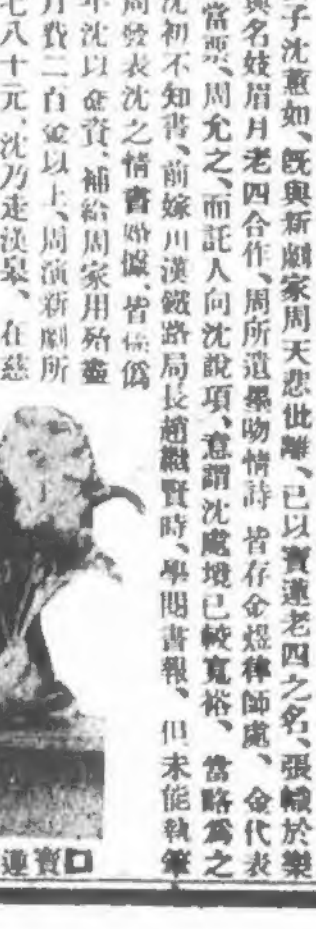 子沈蕙如、旣與新劇家周天悲仳離、已以寶蓮老四之名、張幟於樂
與名妓眉月老四合作、周所遺墨吻情詩、皆存金煜律師處、金代表
當票、周允之、而託人向沈說項、意謂沈處境已較寬裕、當略爲之
沈初不知書、前嫁川漢鐵路局長趙繼賢時、學閱書報、但未能執筆
周發表沈之情書婚據、皆係僞
年沈以金資、補給周家用殆盡
月費二百金以上、周演新劇所
七八十元、沈乃走漢皋、在慈
□寶蓮